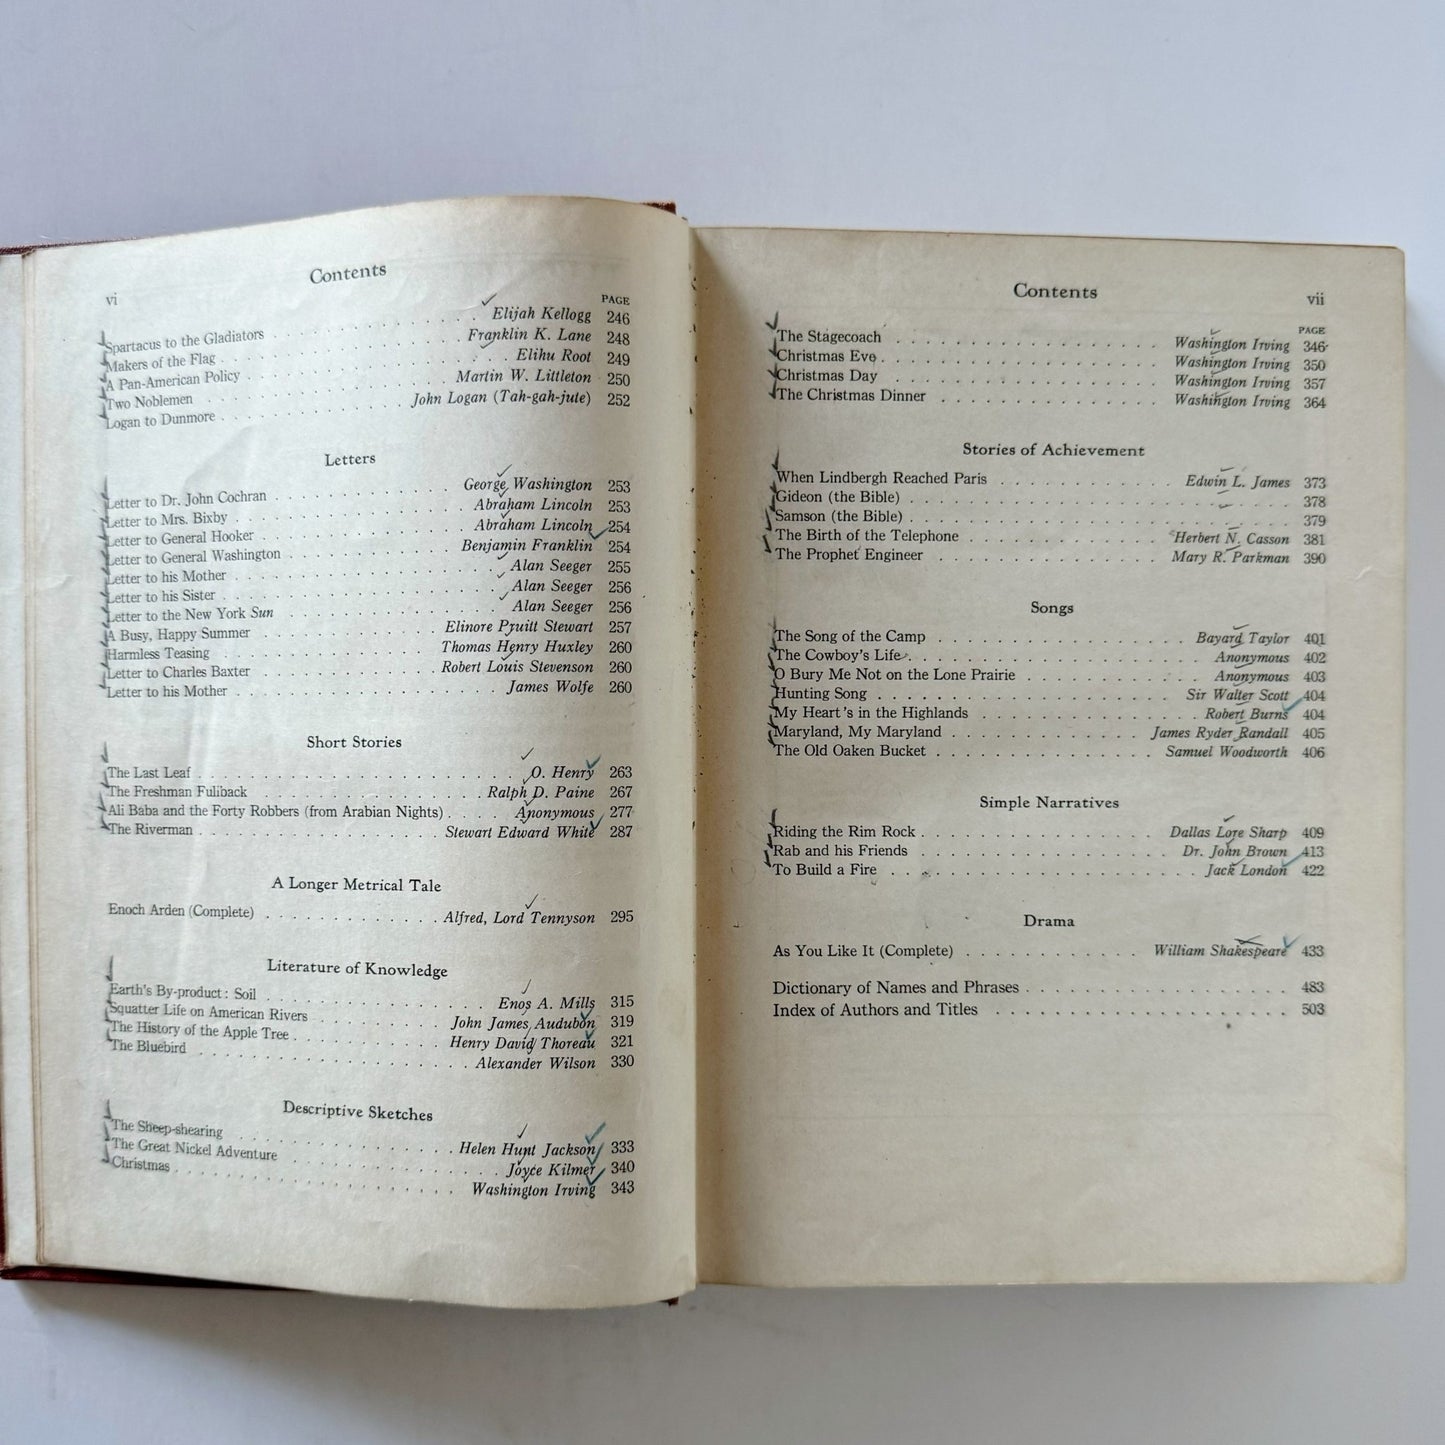 Contents
vi
PAGE
Spartacus to the Gladiators . . . . . . . . . . Elijah Kellogg 246
Makers of the Flag . . . . . . . . . . Franklin K. Lane 248
A Pan-American Policy . . . . . . . . . . Elihu Root 249
Two Noblemen . . . . . . . . . . Martin W. Littleton 250
Logan to Dunmore . . . . . . . . . . John Logan (Tah-gah-jute) 252
Letters
Letter to Dr. John Cochran . . . . . . . . . . George Washington 253
Letter to Mrs. Bixby . . . . . . . . . . Abraham Lincoln 253
Letter to General Hooker . . . . . . . . . . Abraham Lincoln 254
Letter to General Washington . . . . . . . . . . Benjamin Franklin 254
Letter to his Mother . . . . . . . . . . Alan Seeger 255
Letter to his Sister . . . . . . . . . . Alan Seeger 256
Letter to the New York Sun . . . . . . . . . . Alan Seeger 256
A Busy, Happy Summer . . . . . . . . . . Elinore Pruitt Stewart 257
Harmless Teasing . . . . . . . . . . Thomas Henry Huxley 260
Letter to Charles Baxter . . . . . . . . . . Robert Louis Stevenson 260
Letter to his Mother . . . . . . . . . . James Wolfe 260
Short Stories
The Last Leaf . . . . . . . . . . O. Henry 263
The Freshman Fullback . . . . . . . . . . Ralph D. Paine 267
Ali Baba and the Forty Robbers (from Arabian Nights) . . . . Anonymous 277
The Riverman . . . . . . . . . . Stewart Edward White 287
A Longer Metrical Tale
Enoch Arden (Complete) . . . . . . . . . . Alfred, Lord Tennyson 295
Literature of Knowledge
Earth's By-product: Soil . . . . . . . . . . Enos A. Mills 315
Squatter Life on American Rivers . . . . . . . . . . John James Audubon 319
The History of the Apple Tree . . . . . . . . . . Henry David Thoreau 321
The Bluebird . . . . . . . . . . Alexander Wilson 330
Descriptive Sketches
The Sheep-shearing . . . . . . . . . . Helen Hunt Jackson 333
The Great Nickel Adventure . . . . . . . . . . Joyce Kilmer 340
Christmas . . . . . . . . . . Washington Irving 343
Contents
vii
PAGE
The Stagecoach . . . . . . . . . . Washington Irving 346
Christmas Eve . . . . . . . . . . Washington Irving 350
Christmas Day . . . . . . . . . . Washington Irving 357
The Christmas Dinner . . . . . . . . . . Washington Irving 364
Stories of Achievement
When Lindbergh Reached Paris . . . . . . . . . . Edwin L. James 373
Gideon (the Bible) . . . . . . . . . . 378
Samson (the Bible) . . . . . . . . . . 379
The Birth of the Telephone . . . . . . . . . . Herbert N. Casson 381
The Prophet Engineer . . . . . . . . . . Mary R. Parkman 390
Songs
The Song of the Camp . . . . . . . . . . Bayard Taylor 401
The Cowboy's Life . . . . . . . . . . Anonymous 402
O Bury Me Not on the Lone Prairie . . . . . . . . . . Anonymous 403
Hunting Song . . . . . . . . . . Sir Walter Scott 404
My Heart's in the Highlands . . . . . . . . . . Robert Burns 404
Maryland, My Maryland . . . . . . . . . . James Ryder Randall 405
The Old Oaken Bucket . . . . . . . . . . Samuel Woodworth 406
Simple Narratives
Riding the Rim Rock . . . . . . . . . . Dallas Lore Sharp 409
Rab and his Friends . . . . . . . . . . Dr. John Brown 413
To Build a Fire . . . . . . . . . . Jack London 422
Drama
As You Like It (Complete) . . . . . . . . . . William Shakespeare 433
Dictionary of Names and Phrases . . . . . . . . . . 483
Index of Authors and Titles . . . . . . . . . . 503